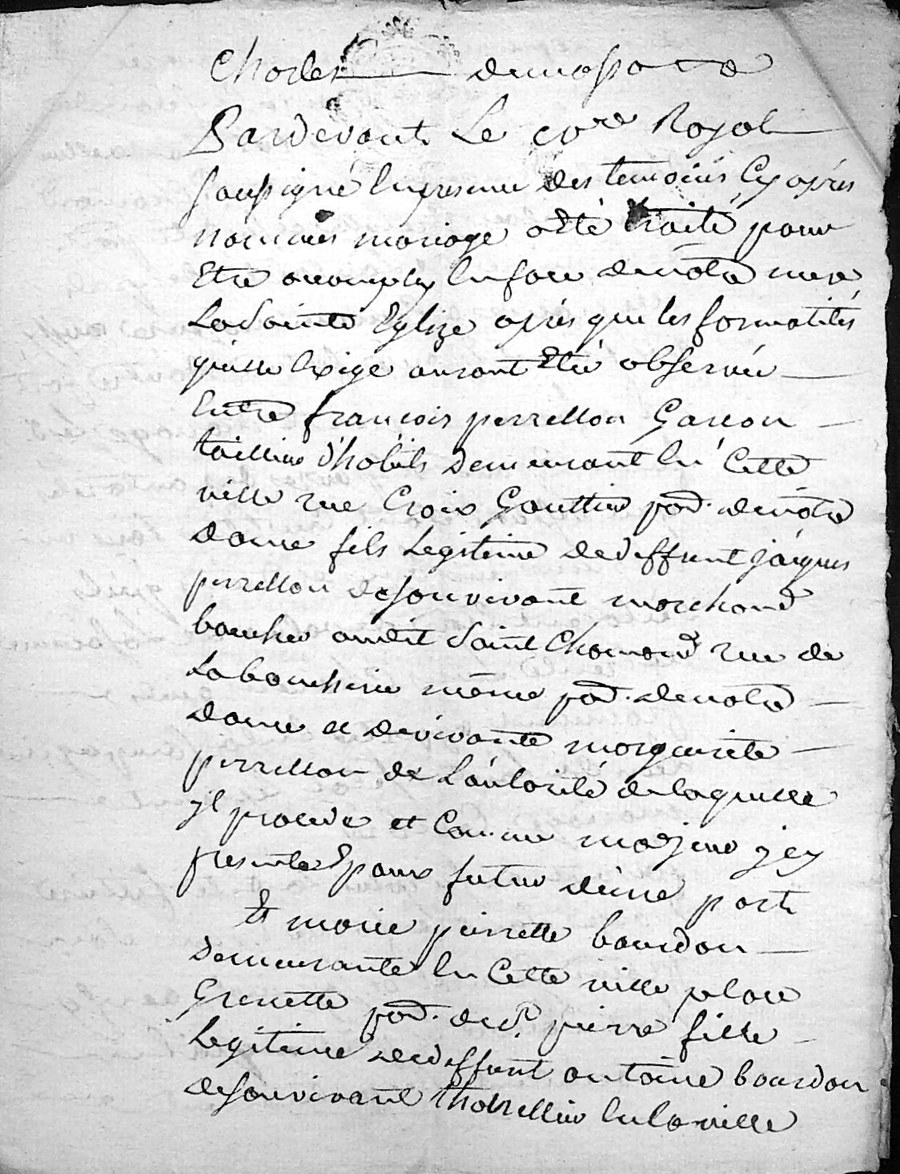 Pardevant Le cn.re Royal
Soussigné En presence des temoins Cy après
nommés mariage a Eté traité pour
Etre accomply En face de notre mere
La Sainte Eglize après que les formalités
qu'elle Exige auront Eté observées
Entre françois perrellon Garcon
tailleur d'habits demeurant En Cette
ville rue Croix Gauttier par. de notre
dame fils Legitime de deffunt jacques
perrellon de son vivant marchand
boucher audit Saint Chamond rue de
La boucherie même par. de notre
dame et de vivante marguerite
perrellon de L'autorité de laquelle
yl procede et Comme majeur jcy
present Epoux futur d'une part
Et marie pierrette bourdon
demeurante En Cette ville place
Grenette par. de St. pierre fille
Legitime de deffunt antoine bourdon
de son vivant En la ville